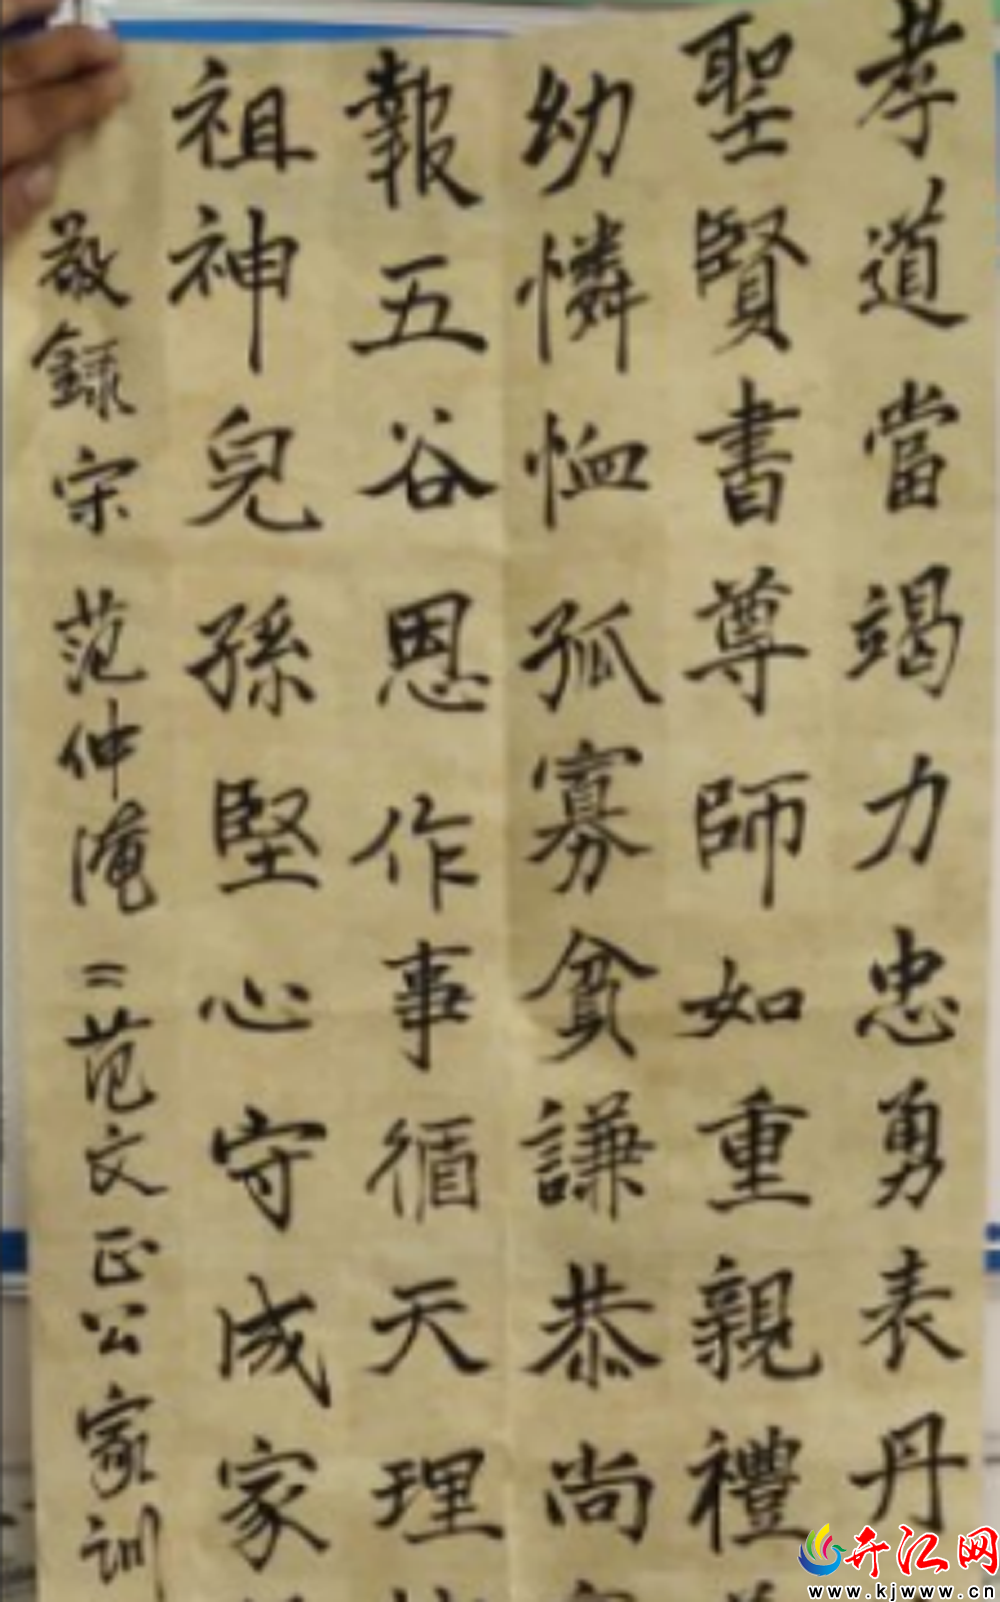 孝道當竭力忠勇表丹
聖賢書尊師如重親禮
幼憐恤孤寡貧謙恭尚
報五谷恩作事循天理
祖神兒孫堅心守成家
敬錄宋范仲淹《范文正公家训
开江网
www.kjwww.cn